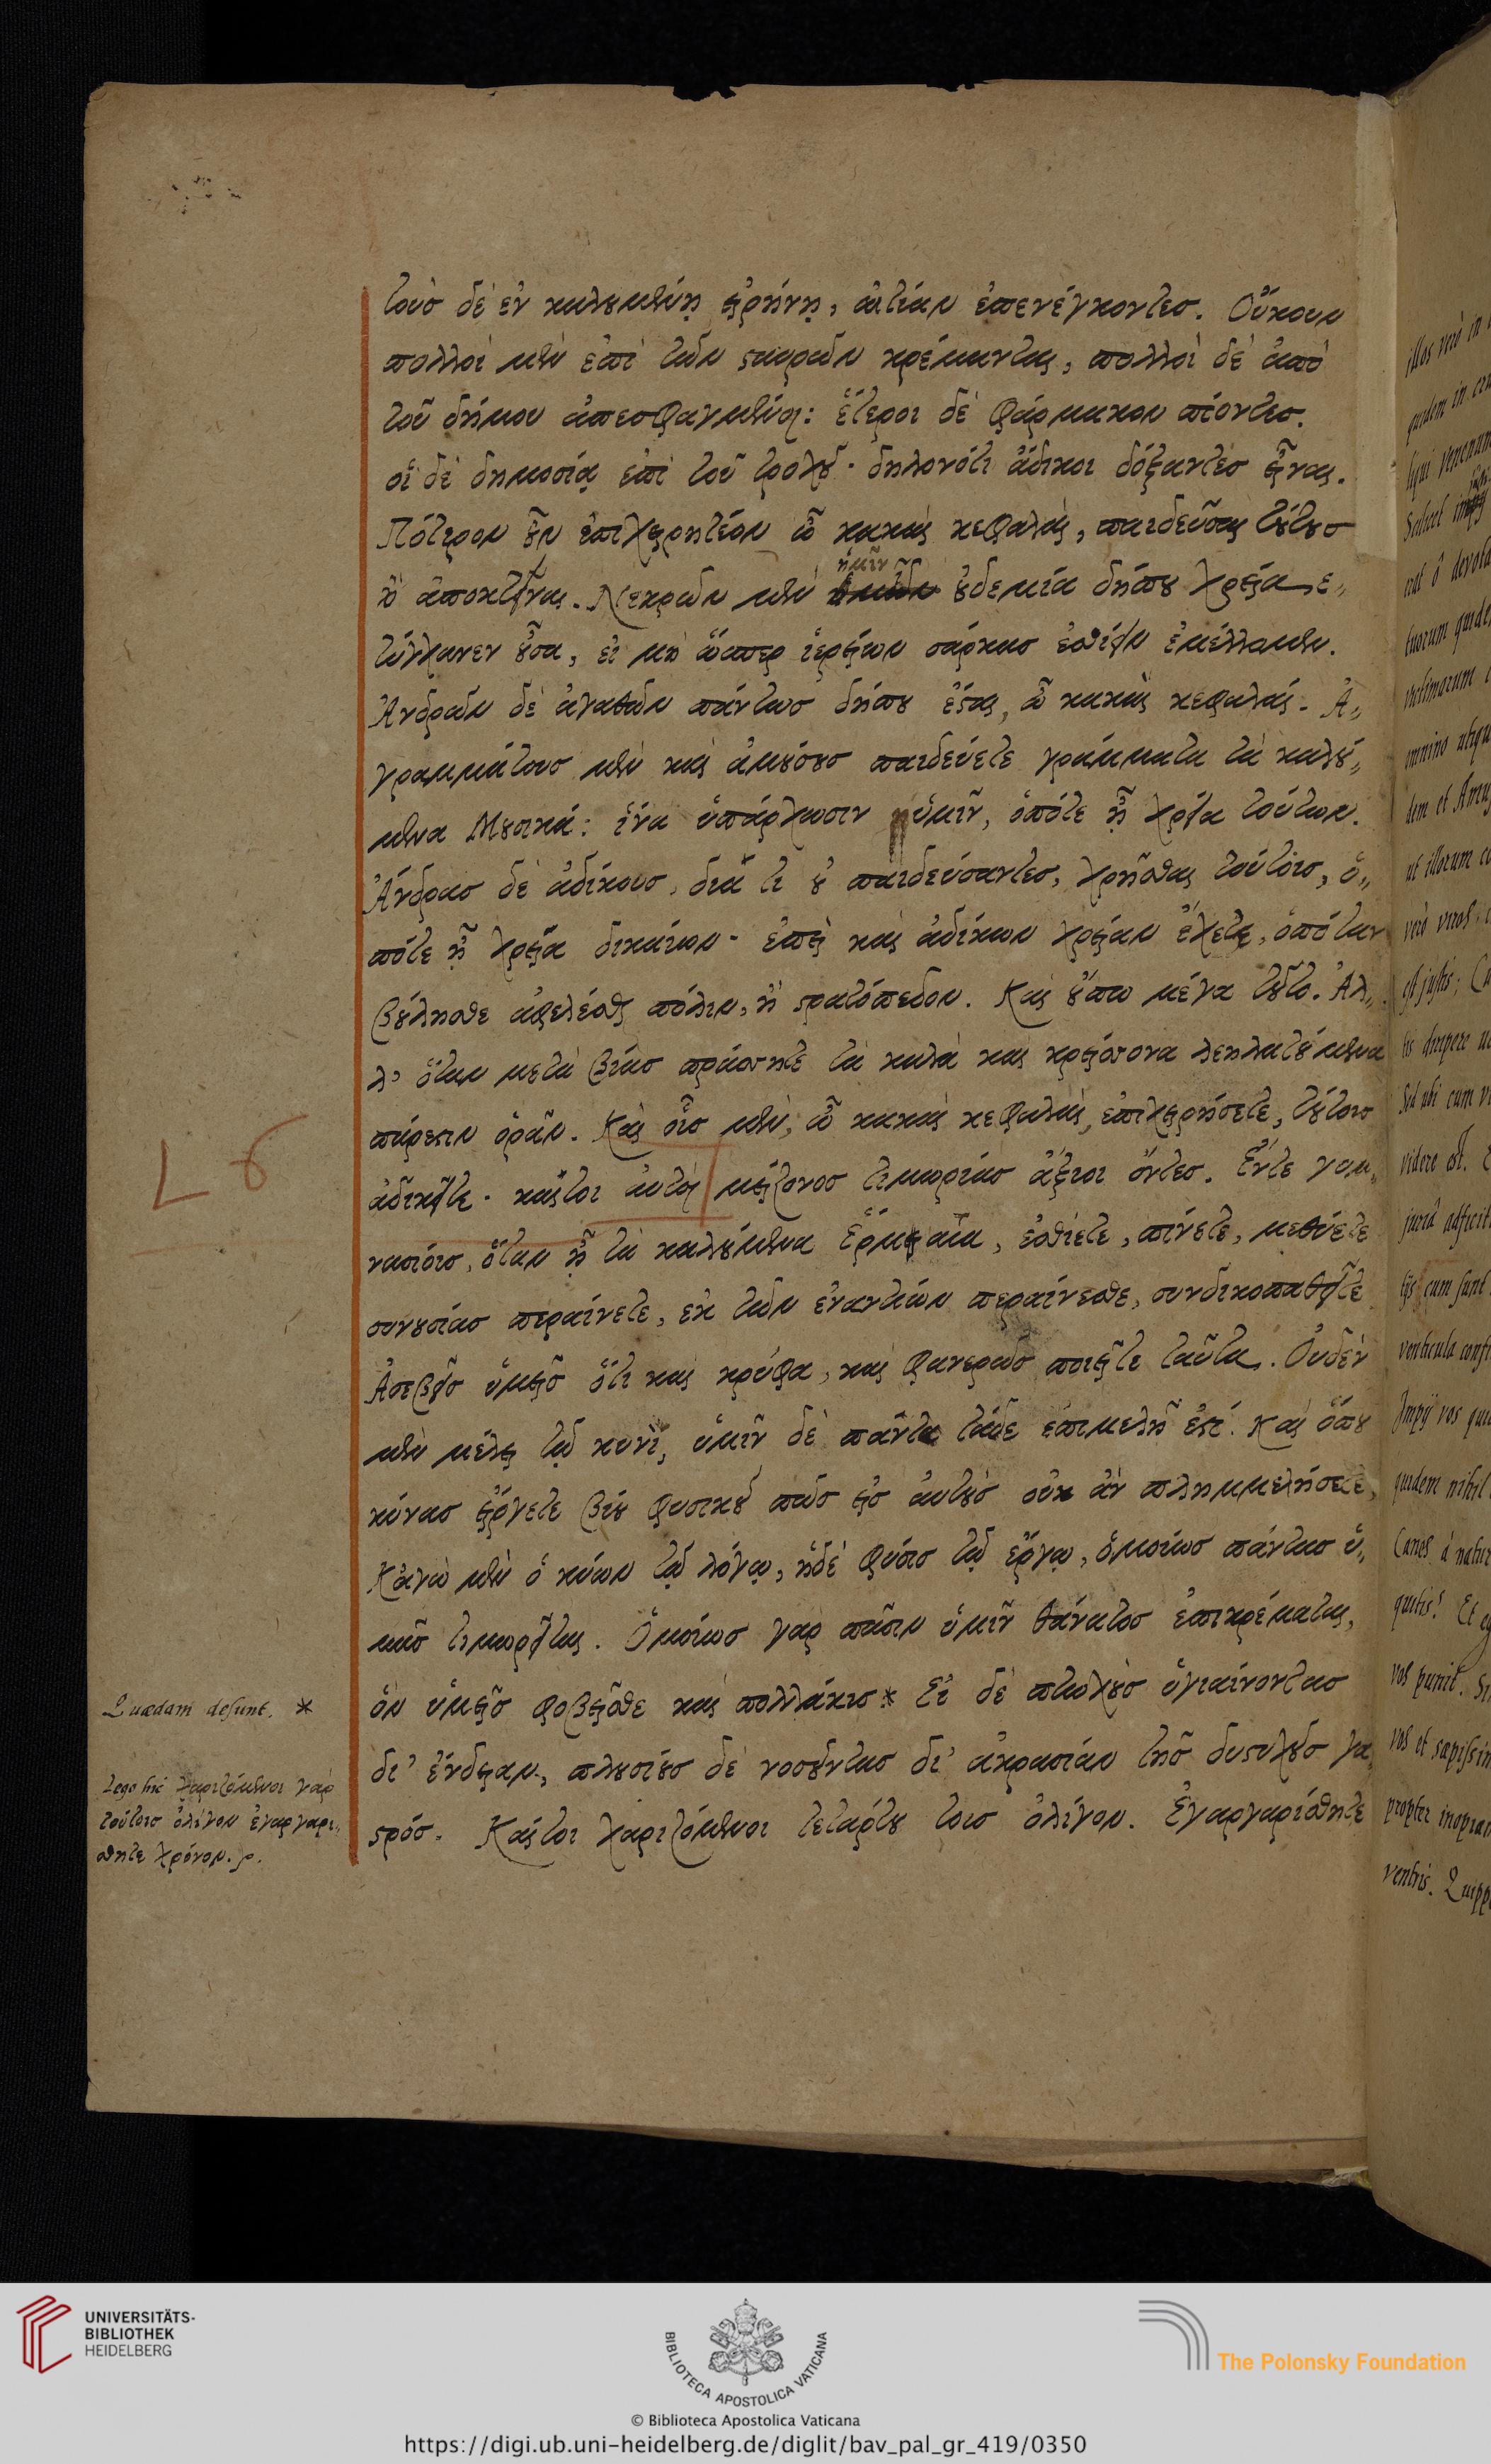 τοὺσ δὲ ἐν καλουμένῃ εἰρήνῃ, αἰτίαν ἐπενέγκοντεσ. Οὔκουν
πολλοὶ μὲν ἐπὶ τῶν σταυρῶν κρέμανται, πολλοὶ δὲ ἀπὸ
τοῦ δήμου ἀπεσφαγμένοι: ἕτεροι δὲ φάρμακον πίοντεσ.
οἱ δὲ δημοσίᾳ ἐπὶ τοῦ τροχοῦ. δηλονότι ἄδικοι δόξαντεσ εἶναι.
Πότερον οὖν ἐπιχειρητέον ὦ κακαὶ κεφαλαὶ, παιδεῦσαι τούτουσ
ἢ ἀποκτεῖναι. Νεκρῶν μὲν ἡμῖν οὐδεμία δήπου χρεία ἐ„
τύγχανεν οὖσα, εἰ μὴ ὥσπερ ἱερείων σάρκασ ἐσθίειν ἐμέλλομεν.
Ἀνδρῶν δὲ ἀγαθῶν πάντωσ δήπου ἐσται, ὦ κακαὶ κεφαλαί. Ἀ„
γραμμάτουσ μὲν καὶ ἀμούσουσ παιδεύετε γράμματα τὰ καλού„
μενα Μουσικά: ἵνα ὑπάρχωσιν ὑμῖν, ὁπότε ᾖ χρεία τούτων.
Ἄνδρασ δὲ ἀδίκουσ, διὰ τι οὐ παιδεύσαντεσ, χρῆσθαι τούτοισ, ὁ„
πότε ᾖ χρεία δικαίων. ἐπεὶ καὶ ἀδίκων χρείαν ἔχετε, ὁπόταν
βούλησθε ἀφελέσθαι πόλιν, ἢ στρατόπεδον. Καὶ οὔπω μέγα τοῦτο. Ἀλ„
λ' ὅταν μετὰ βίασ πράσσητε τὰ καλὰ καὶ κρείσσονα λεηλατούμενα
πάρεστιν ὁρᾶν. Καὶ οἷσ μὲν, ὦ κακαὶ κεφαλαὶ, ἐπιχειρήσετε, τούτοισ
ἀδικεῖτε. καίτοι αὐτοὶ μείζονοσ τιμωρίασ ἄξιοι ὄντεσ. Ἔντε γυμ„
νασίοισ, ὅταν ᾖ τὰ καλούμενα Ἑρμεαῖα, ἐσθίετε, πίνετε, μεθύετε
συνουσίασ περαίνετε, ἐκ τῶν ἐναντίων περαίνεσθε, συνδικοπαθεῖτε
Ἀσεβεῖσ ὑμεῖσ ὅτι καὶ κρύφα, καὶ φανερῶσ ποιεῖτε ταῦτα. Οὐδὲν
μὲν μέλει τῷ κυνὶ, ὑμῖν δὲ πάντα τάδε ἐπιμελῆ ἐστί. Καὶ ὅπου
κύνασ εἴργετε βίου φυσικοῦ πῶσ εἰσ αὐτοὺσ οὐκ ἀν πλημμελήσετε,
Κἀγὼ μὲν ὁ κύων τῷ λόγῳ, ἡδὲ φύσισ τῷ ἔργῳ, ὁμοίωσ πάντασ ὑ„
μᾶσ τιμωρεῖται. Ὁμοίωσ γὰρ πᾶσιν ὑμῖν θάνατοσ ἐπικρέμαται,
ὃν ὑμεῖσ φοβεῖσθε καὶ πολλάκισ* Εἰ δὲ πτωχοὺσ ὑγιαίνοντασ
δι' ἔνδειαν, πλουσίουσ δὲ νοσοῦντασ δι' ἀκρασίαν τῆσ δυστυχοῦσ γα
στρόσ. Καίτοι χαριζόμενοι τετάρτου τοισ ὀλίγον. Ἐγαργαρίσθητε
L 6
Quædam desunt. *
Lego sic χαριζόμενοι γὰρ
τούτοισ ὀλίγον ἐγαργαρί„
σθητε χρόνον.
illos vero in
quidem in cru
liqui venenum
Scilicet
rat ô
tuorum quide
victimarum
omnino utiqu
dem et Amus
ut illorum
vero viros
est justis;
tis diripere
Sed ubi cum vi
videre est.
juriâ adficit
tijs cum sunt
venticula
Impij vos
quidem nihil
Canes à natur
quitis? Et eg
vos punit. Si
vos et sæpissim
propter inopiam
ventris. Quipp
UNIVERSITÄTS-
BIBLIOTHEK
HEIDELBERG
BIBLIOTECA APOSTOLICA VATICANA
The Polonsky Foundation
© Biblioteca Apostolica Vaticana
https://digi.ub.uni-heidelberg.de/diglit/bav_pal_gr_419/0350